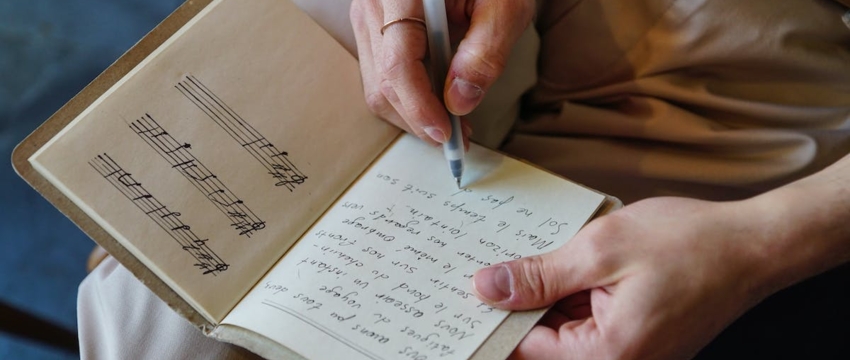 ous avons pu tous deux
fatigués du voyage
Nous asseoir un instant
Sur le bord du chemin-
sentir sur nos fronts
le même ombrage
porter nos regards vers
orizon lointain.
Mais le temps suit son
ne pas